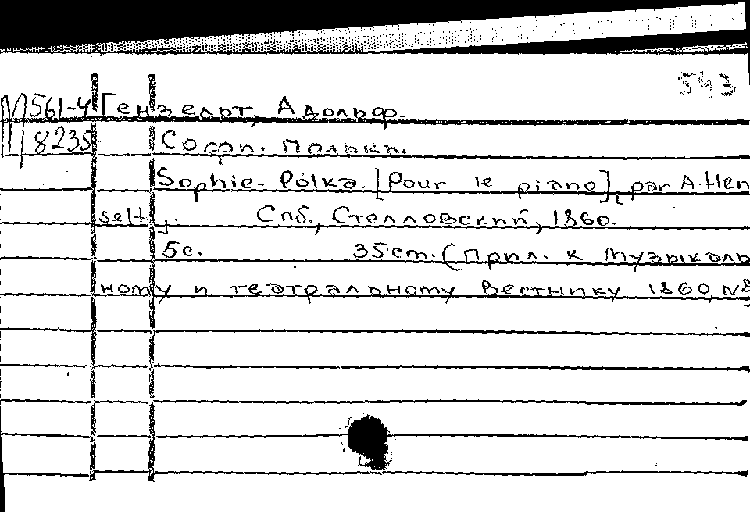 543
М 561-4 Гензельт, Адольф.
8235 Софи. Полька.
Sophie-Polka. [Pour le piano], par A. Hen
selt.
Спб., Стелловский, 1860.
5с. 35cm. (Прил. к Музыкаль
ному и театральному вестнику 1860, №8